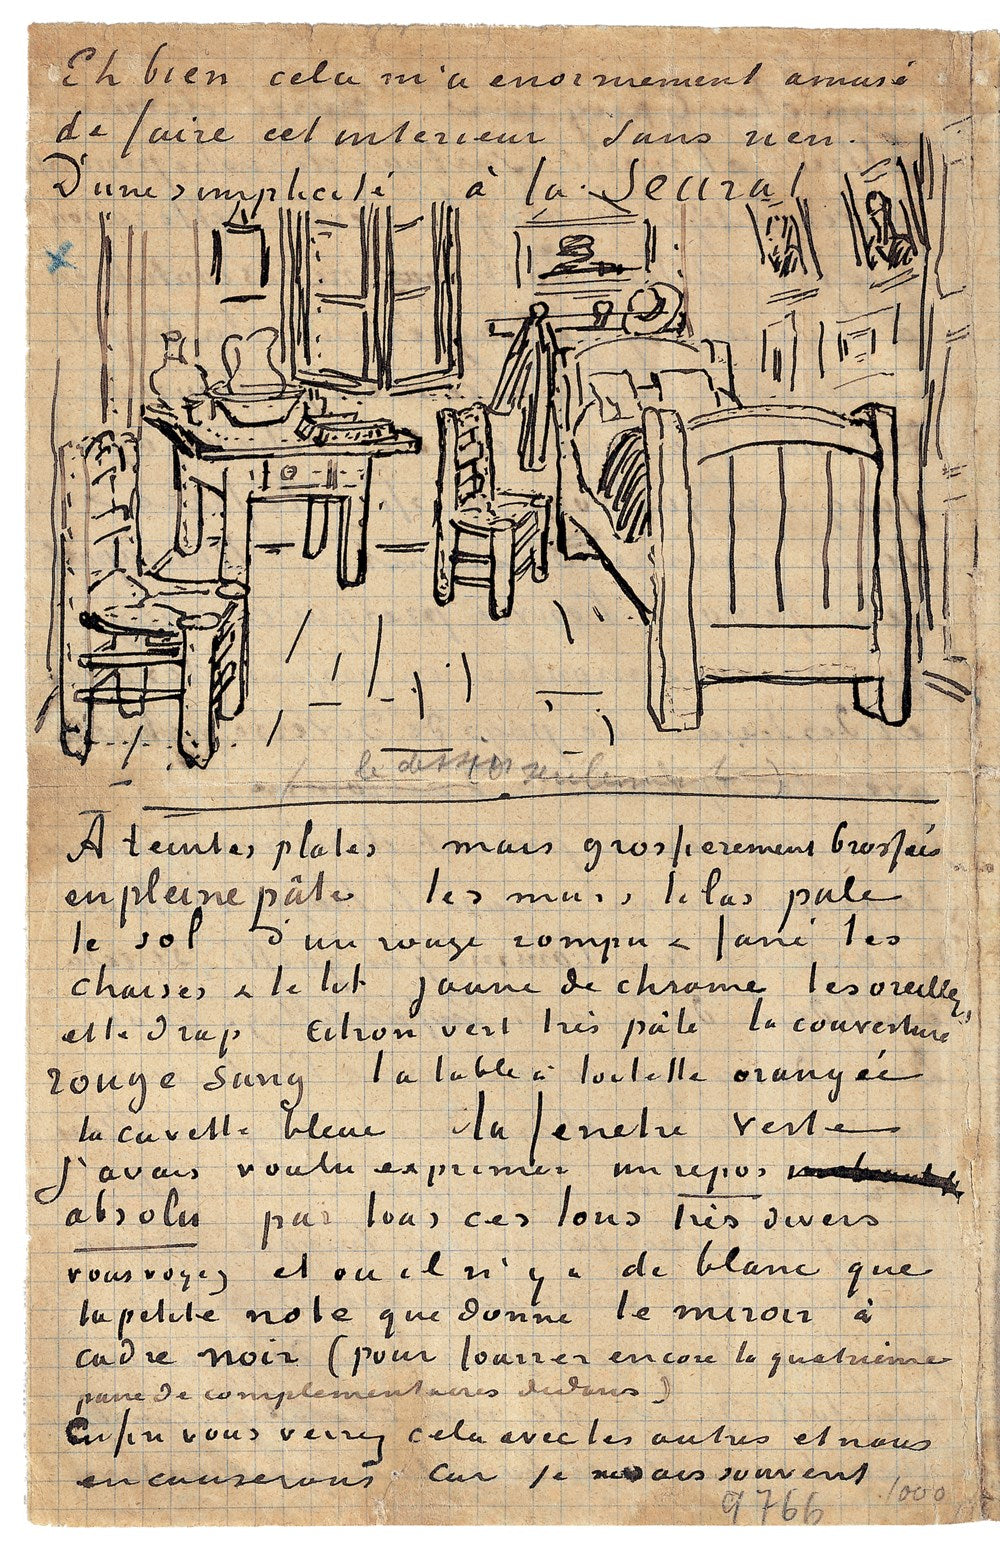 Eh bien cela m'a enormement amusé
de faire cet interieur sans rien.
D'une simplicité à la Seurat
(le dessin seulement)
A teintes plates mais grossierement brossées
en pleine pâte les murs lilas pale
le sol d'un rouge rompu & fané les
chaises & le lit jaune de chrome les oreillers
et le drap citron vert très pâle la couverture
rouge sang la table à toilette orangée
la cuvette bleue la fenetre verte
j'avais voulu exprimer un repos
absolu par tous ces tons très divers
vous voyez et ou il n'y a de blanc que
la petite note que donne le miroir à
cadre noir (pour fourrer encore la quatrième
paire de complementaires dedans)
Enfin vous verrez cela avec les autres et nous
en causerons car je ne sais souvent
9766 1000